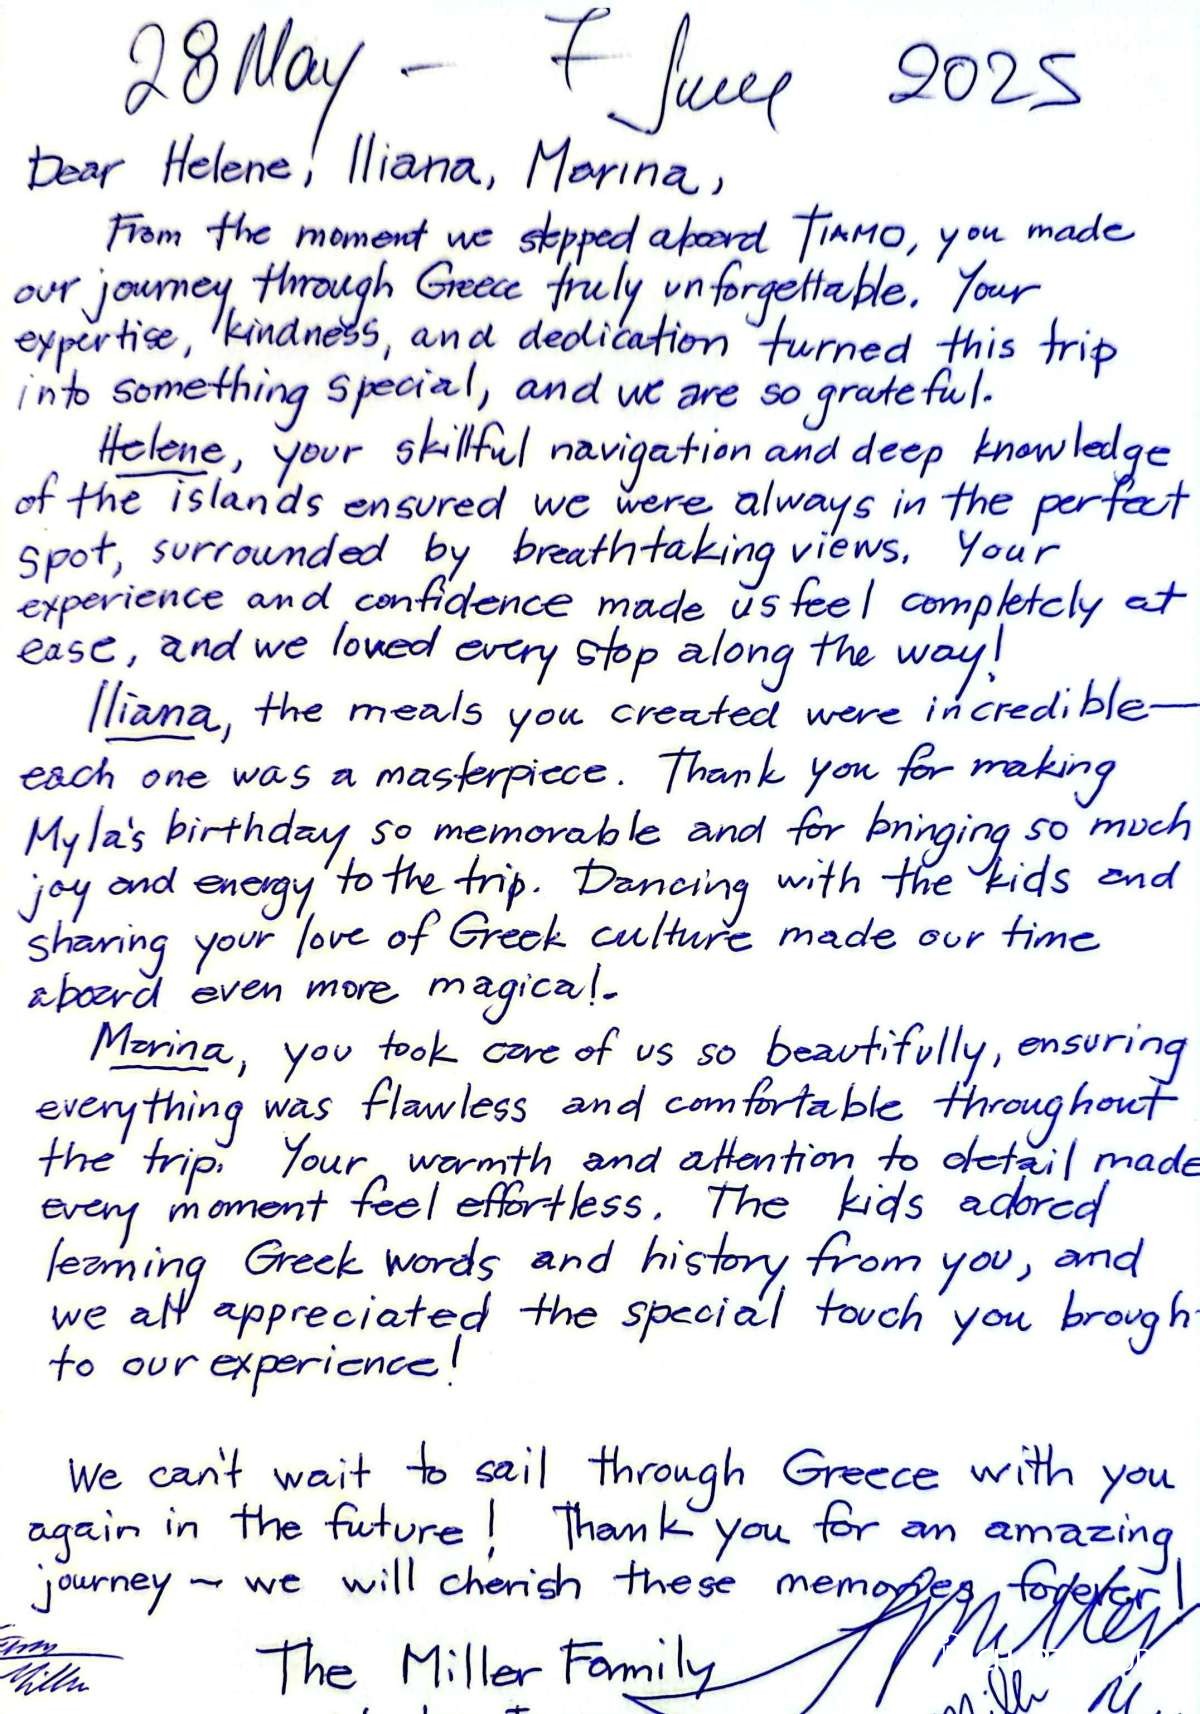 28 May – 7 June 2025
Dear Helene, Iliana, Marina,
From the moment we stepped aboard TIAMO, you made
our journey through Greece truly unforgettable. Your
expertise, kindness, and dedication turned this trip
into something special, and we are so grateful.
Helene, your skillful navigation and deep knowledge
of the islands ensured we were always in the perfect
spot, surrounded by breathtaking views. Your
experience and confidence made us feel completely at
ease, and we loved every stop along the way!
Iliana, the meals you created were incredible—
each one was a masterpiece. Thank you for making
Myla's birthday so memorable and for bringing so much
joy and energy to the trip. Dancing with the kids and
sharing your love of Greek culture made our time
aboard even more magical.
Marina, you took care of us so beautifully, ensuring
everything was flawless and comfortable throughout
the trip. Your warmth and attention to detail made
every moment feel effortless. The kids adored
learning Greek words and history from you, and
we all appreciated the special touch you brough
to our experience!
We can't wait to sail through Greece with you
again in the future! Thank you for an amazing
journey – we will cherish these memories forever!
The Miller Family
Miller